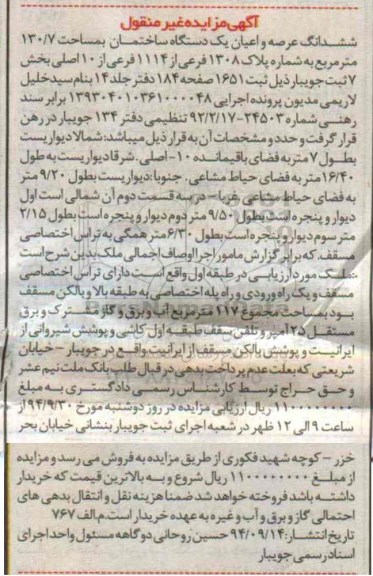 آگهی مزایده غیر منقول
ششدانگ عرصه و اعیان یک دستگاه ساختمان بمساحت ۱۳۰/۷
متر مربع به شماره پلاک ۱۳۰۸ فرعی از ۱۱۱۴ فرعی از ۱۰ اصلی بخش
۷ ثبت جویبار ذیل ثبت ۱۶۵۱ صفحه ۱۸۴ دفتر جلد ۱۴ بنام سید خلیل
لاریمی مدیون پرونده اجرایی ۱۳۹۳۰۴۰۱۰۳۶۱۰۰۰۰۴۸ برابر سند
رهنی شماره ۲۴۵۰۳-۹۲/۲/۱۷ تنظیمی دفتر ۱۳۴ جویبار در رهن
قرار گرفت و حدد و مشخصات آن به قرار ذیل میباشد: شمالا دیواریست
بطول ۷ متر به فضای باقیمانده ۱۰- اصلی . شرقا دیواریست به طول
۱۶/۴۰ متر به فضای حیاط مشاعی. جنوبا: دیواریست بطول ۹/۲۰ متر
به فضای حیاط مشاعی غربا – در سه قسمت دوم آن شمالی است اول
دیوار و پنجره است بطول ۹/۵۰ متر دوم دیوار و پنجره است بطول ۲/۱۵
متر سوم دیوار و پنجره است بطول ۶/۳۰ متر همگی به تراس اختصاصی
مسقف، که برابر گزارش مامور اجرا اوصاف اجمالی ملک بدین شرح است
:ملک مورد ارزیابی در طبقه اول واقع است دارای تراس اختصاصی
مسقف و یک راه ورودی و راه پله اختصاصی به طبقه بالا و بالکن مسقف
بود بمساحت مجموع ۱۱۷ متر مربع آب و برق و گاز مشترک و برق
مستقل ۲۵ آمپر و تلفن سقف طبقه اول کاشی و پوشش شیروانی از
ایرانیت و پوشش بالکن مسقف از ایرانیت واقع در جویبار – خیابان
شریعتی که بعلت عدم پرداخت بدهی در قبال طلب بانک ملت نیم عشر
و حق حراج توسط کارشناس رسمی دادگستری به مبلغ
۱۱۰۰۰۰۰۰۰۰ ریال ارزیابی مزایده در روز دوشنبه مورخ ۹۴/۹/۳۰ از
ساعت ۹ الی ۱۲ ظهر در شعبه اجرای ثبت جویبار بنشانی خیابان بحر
خزر – کوچه شهید فکوری از طریق مزایده به فروش می رسد و مزایده
از مبلغ ۱۱۰۰۰۰۰۰۰۰ ریال شروع و به بالاترین قیمت که خریدار
داشته باشد فروخته خواهد شد ضمنا هزینه نقل و انتقال بدهی های
احتمالی گاز و برق و آب و غیره به عهده خریدار است.م الف ۷۶۷
تاریخ انتشار: ۹۴/۰۹/۱۴ حسین روحانی دوگاهه مسئول واحد اجرای
اسناد رسمی جویبار